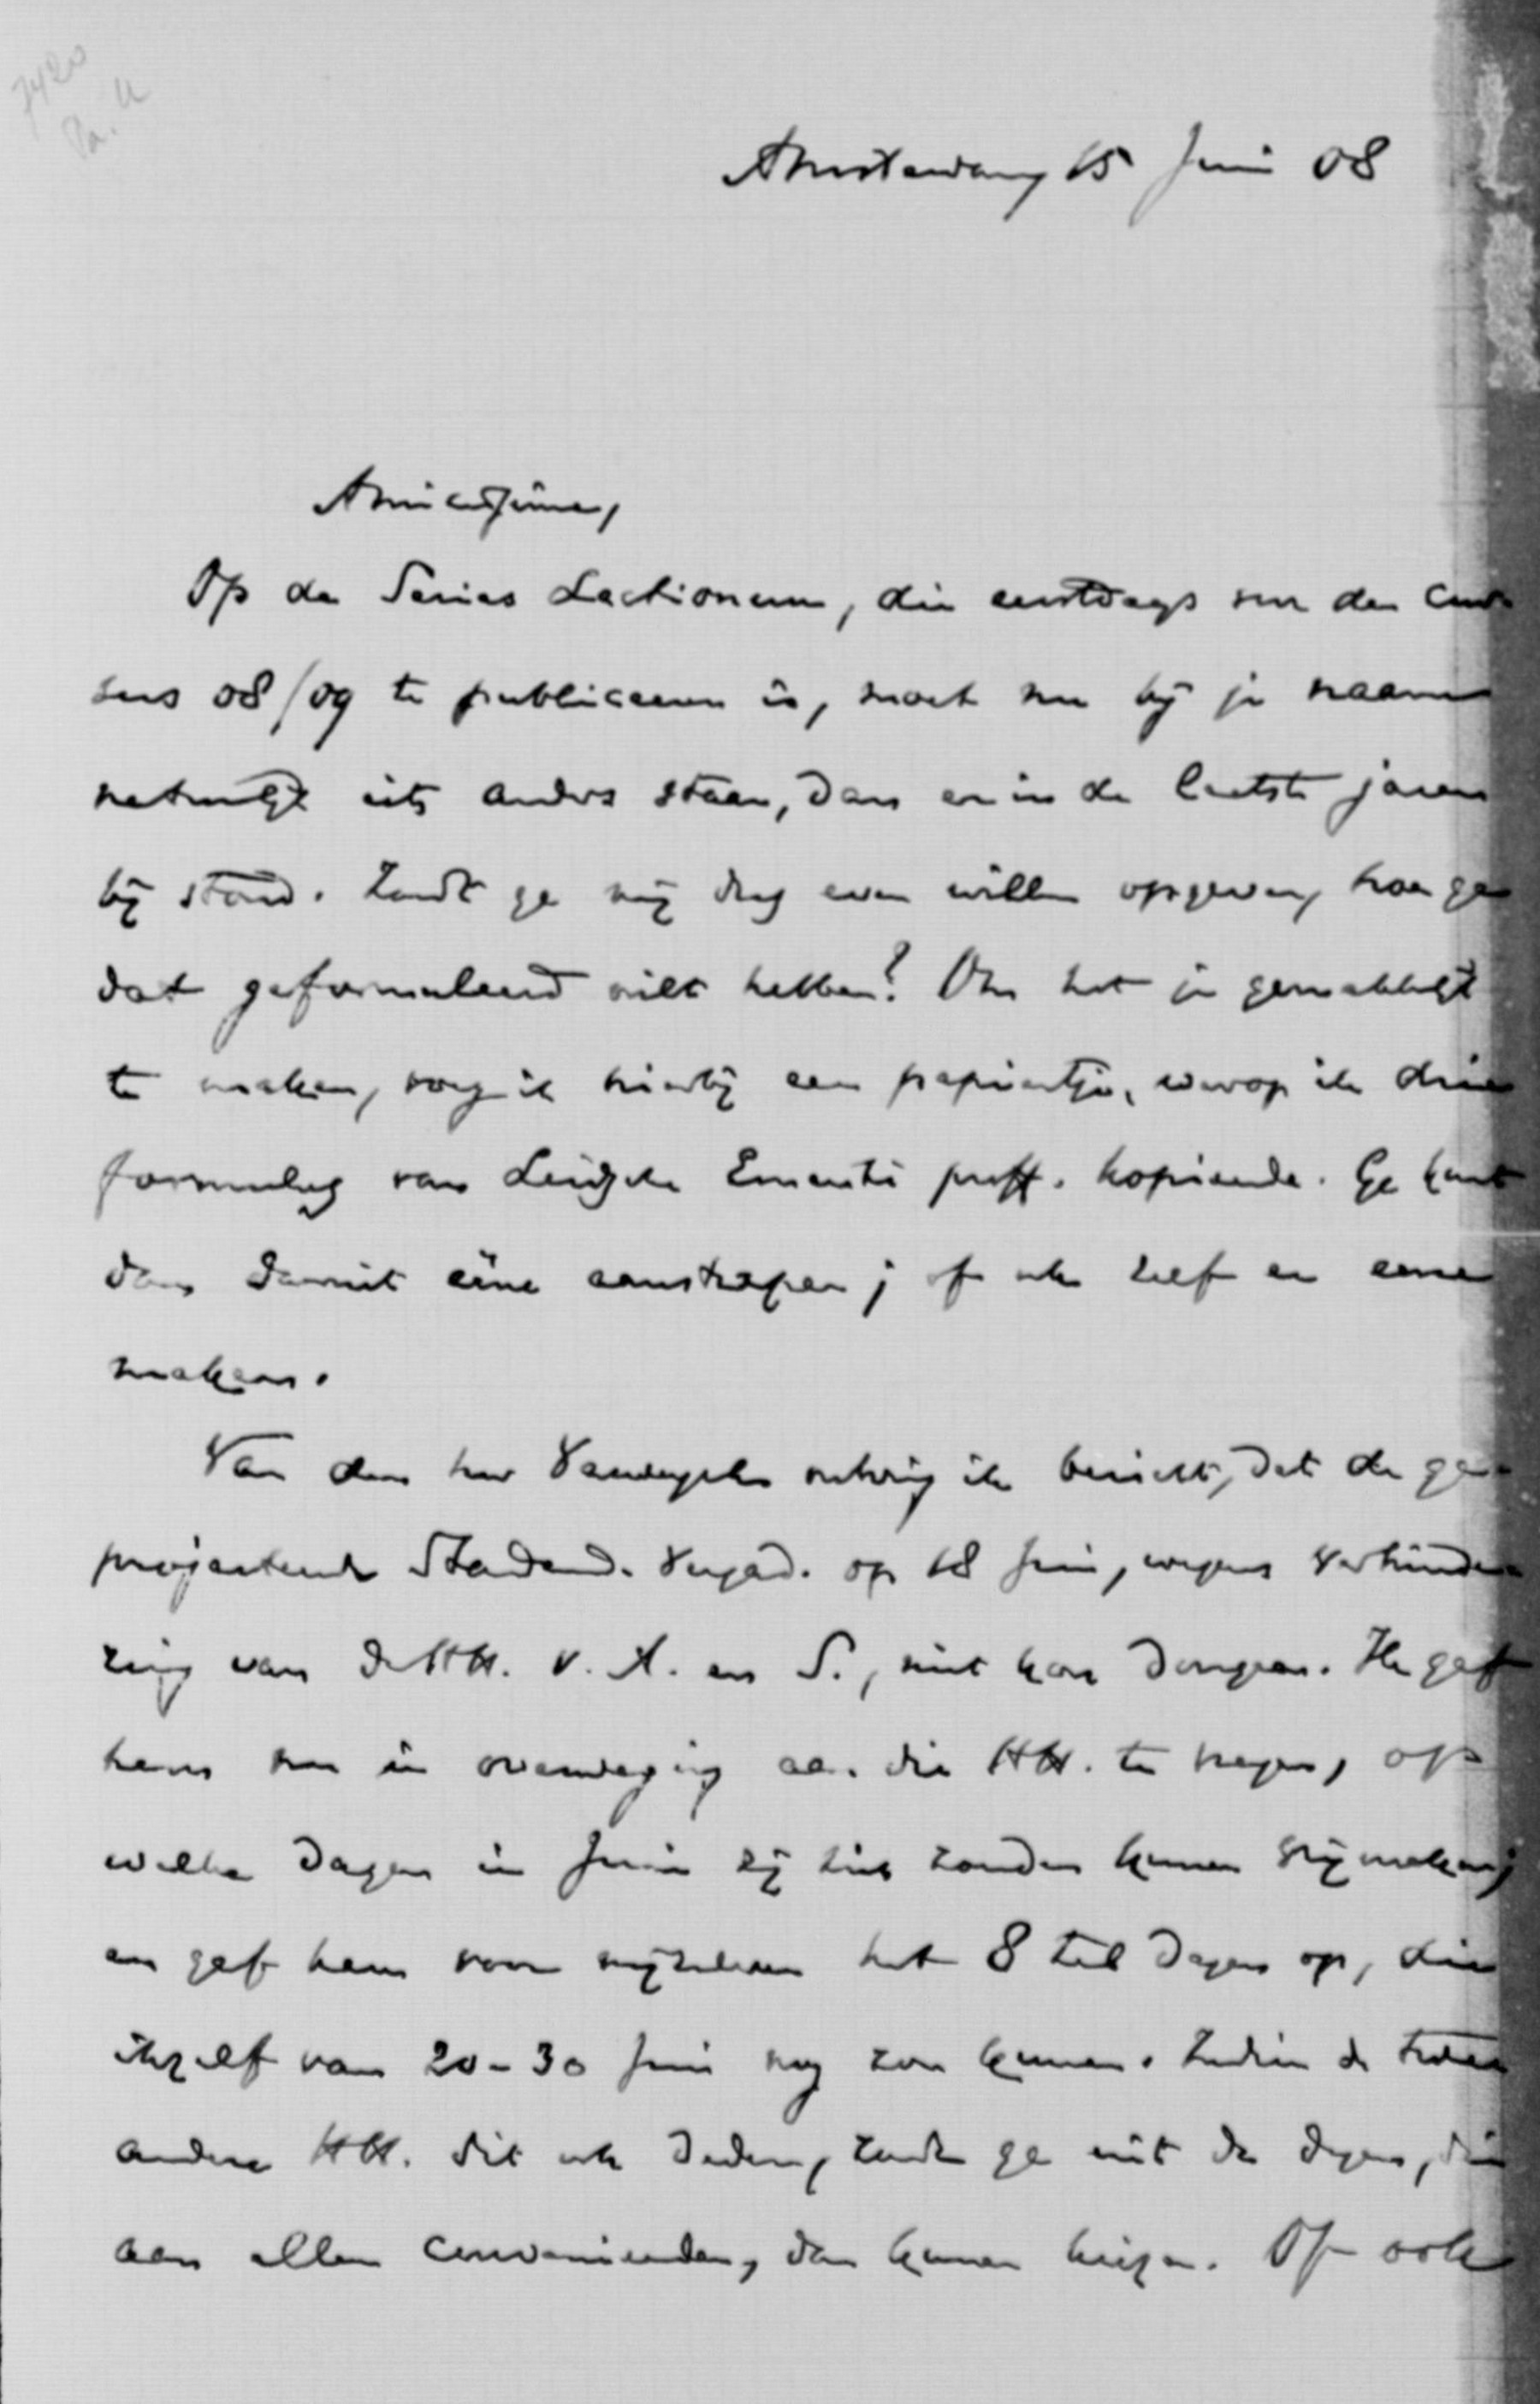 7420
Amsterdam 15 Juni 08
Amicissime,
Op de Series Lectionum, die eerstdags voor den Cur-
sus 08/09 te publiceeren is, moet nu bij je naam
natuurlijk iets anders staan, dan er in de laatste jaren
bij stond. Zoudt ge mij dus even willen opgeven, hoe ge
dat geformuleerd wilt hebben? Om het je gemakkelijk
te maken, voeg ik hierbij een papiertje, waarop ik drie
formules van Leidsche Emeriti proff. kopieerde. Ge kunt
dan daaruit eene aanstrepen; of ook zelf er eene
maken.
Van den heer ontving ik bericht, dat de ge-
projecteerde Vergad. op 18 Juni, wegens verhinde-
ring van de HH. v. A. en S., niet kon doorgaan. Ik gaf
hem nu in overweging aan die HH. te vragen, op
welke dagen in Juni zij zich zouden kunnen vrijmaken;
en gaf hem voor mijzelven het 8 tal dagen op, die
ikzelf van 20-30 Juni nog zou kunnen. Indien de twee
andere HH. dit ook deden, zoudt ge uit de dagen, die
aan allen convenieerden, dan kunnen kiezen. Of ook